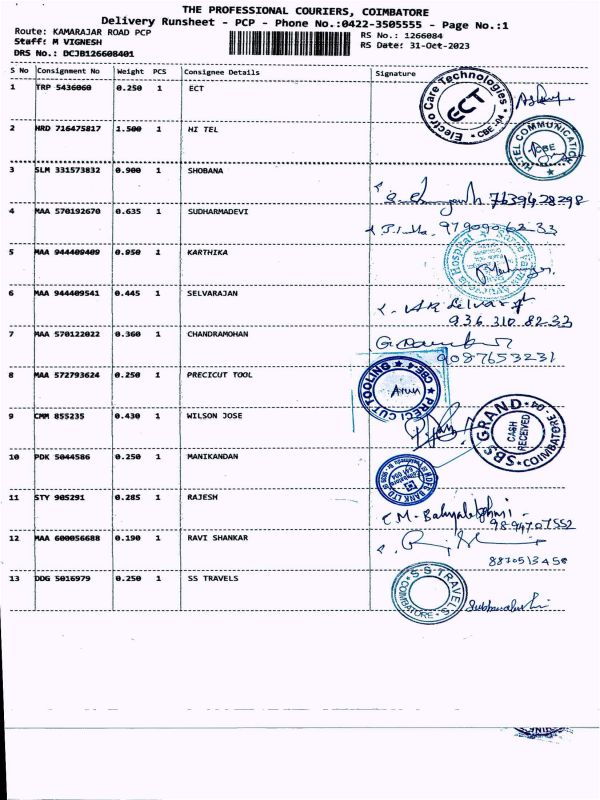 THE PROFESSIONAL COURIERS, COIMBATORE
Delivery Runsheet - PCP - Phone No.:0422-3505555 - Page No.:1
Route: KAMARAJAR ROAD PCP RS No.: 1266084
Staff: M VIGNESH RS Date: 31-Oct-2023
DRS No.: DCJB126608401
S No Consignment No Weight PCS Consignee Details Signature
1 TRP 5436060 0.250 1 ECT
Electro Care Technologies ECT CBE-04
2 HRD 716475817 1.500 1 HI TEL
HI-TEL COMMUNICATION CBE
3 SLM 331573832 0.900 1 SHOBANA
7639428298
4 MAA 570192670 0.635 1 SUDHARMADEVI
9790906233
5 MAA 944409409 0.950 1 KARTHIKA
6 MAA 944409541 0.445 1 SELVARAJAN
936 310 8233
7 MAA 570122022 0.360 1 CHANDRAMOHAN
9087653231
8 MAA 572793624 0.250 1 PRECICUT TOOL
PRECI CUT TOOLING CBE-4
Arun
9 CMM 855235 0.430 1 WILSON JOSE
SBS GRAND COIMBATORE-04 CASH RECEIVED
10 PDK 5044586 0.250 1 MANIKANDAN
11 STY 905291 0.285 1 RAJESH
9894707552
12 MAA 600056688 0.190 1 RAVI SHANKAR
8870513458
13 DDG 5016979 0.250 1 SS TRAVELS
S S TRAVELS COIMBATORE